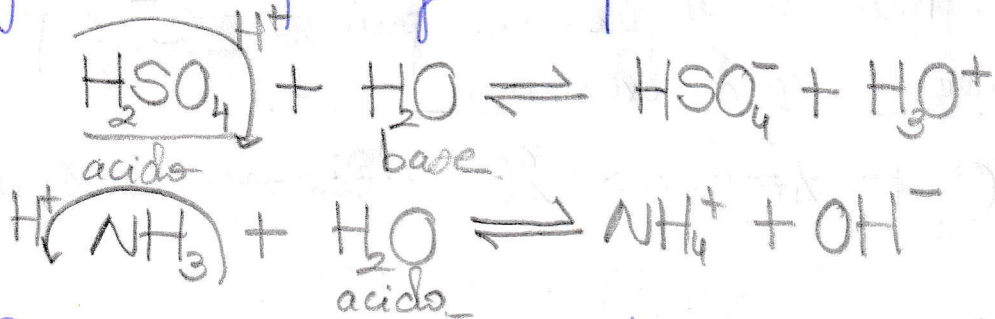 H⁺
H₂SO₄ + H₂O ⇌ HSO₄⁻ + H₃O⁺
acido base
H⁺ NH₃ + H₂O ⇌ NH₄⁺ + OH⁻
acido